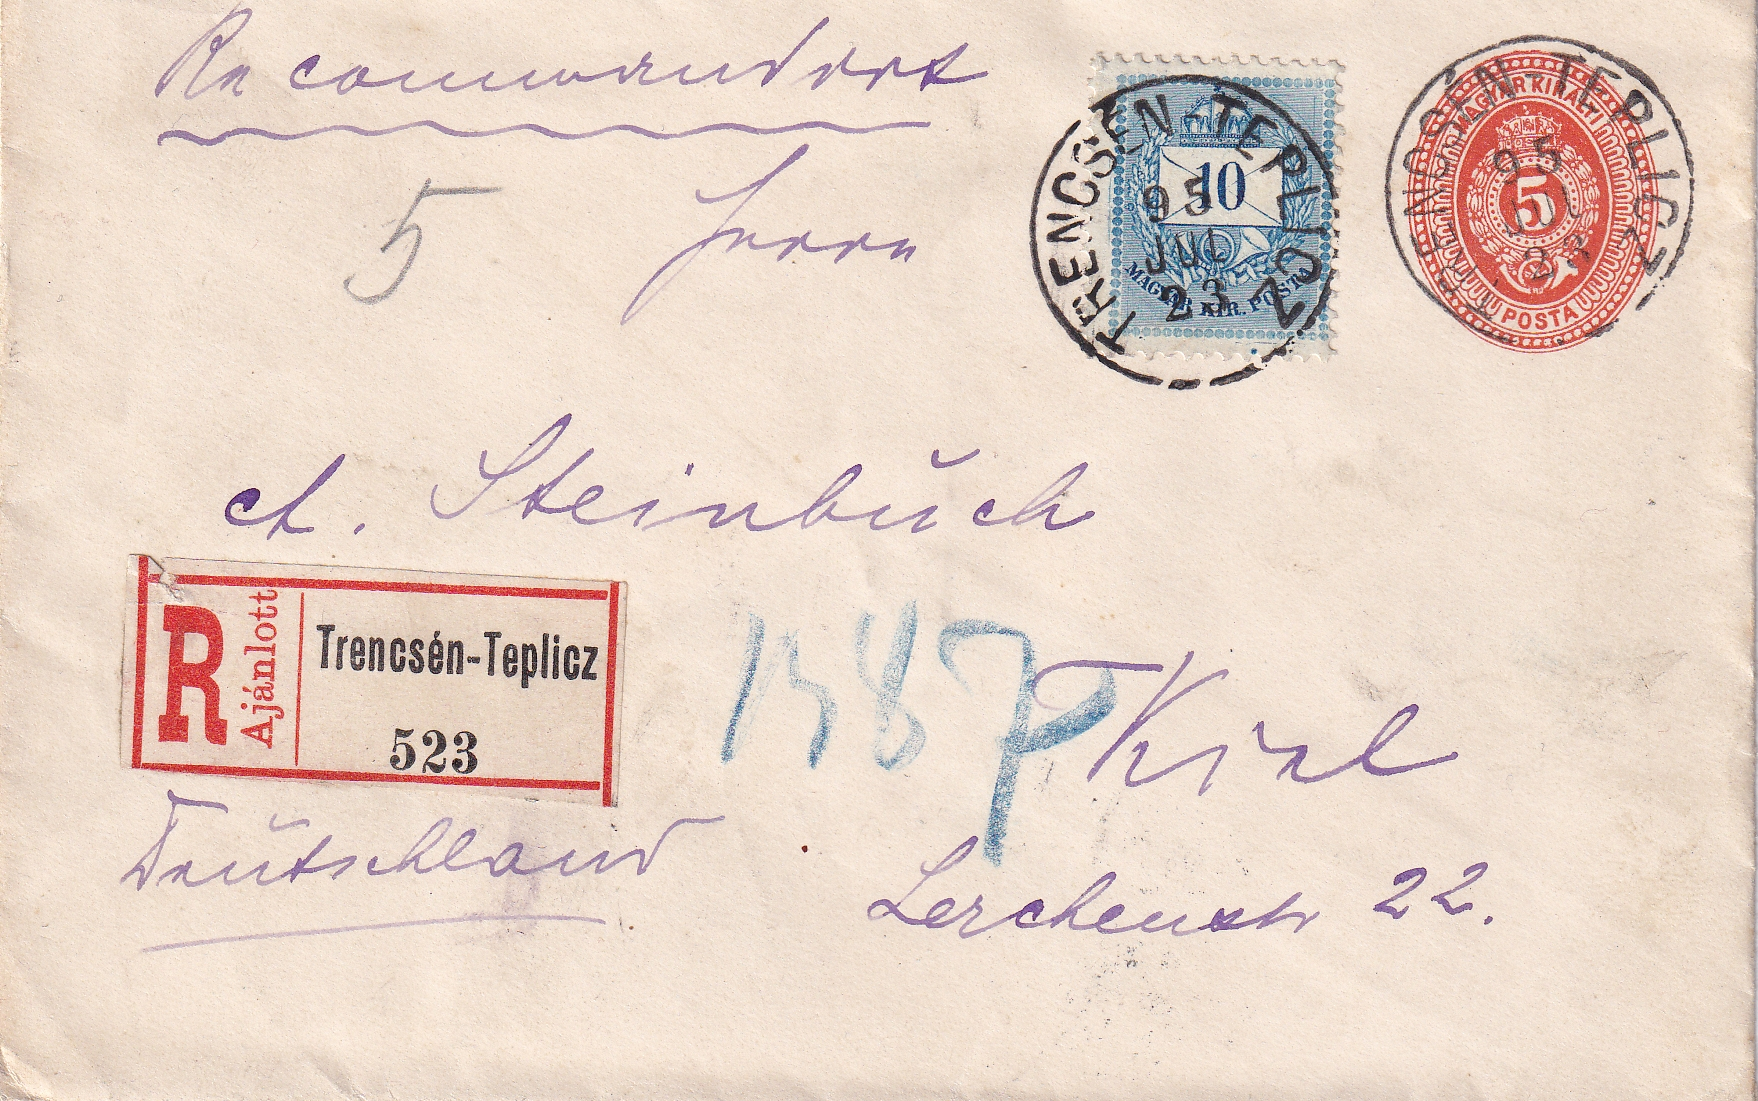 Recommandert
5
Herrn
10
MAGYAR KIR. POSTA
TRENCSÉN-TEPLICZ
95
JUL
23
MAGYAR KIRÁLYI
5
POSTA
TRENCSÉN-TEPLICZ
95
JUL
23
A. Steinbuch
R
Ajánlott
Trencsén-Teplicz
523
87
Kiel
Deutschland
Lerchenstr 22.